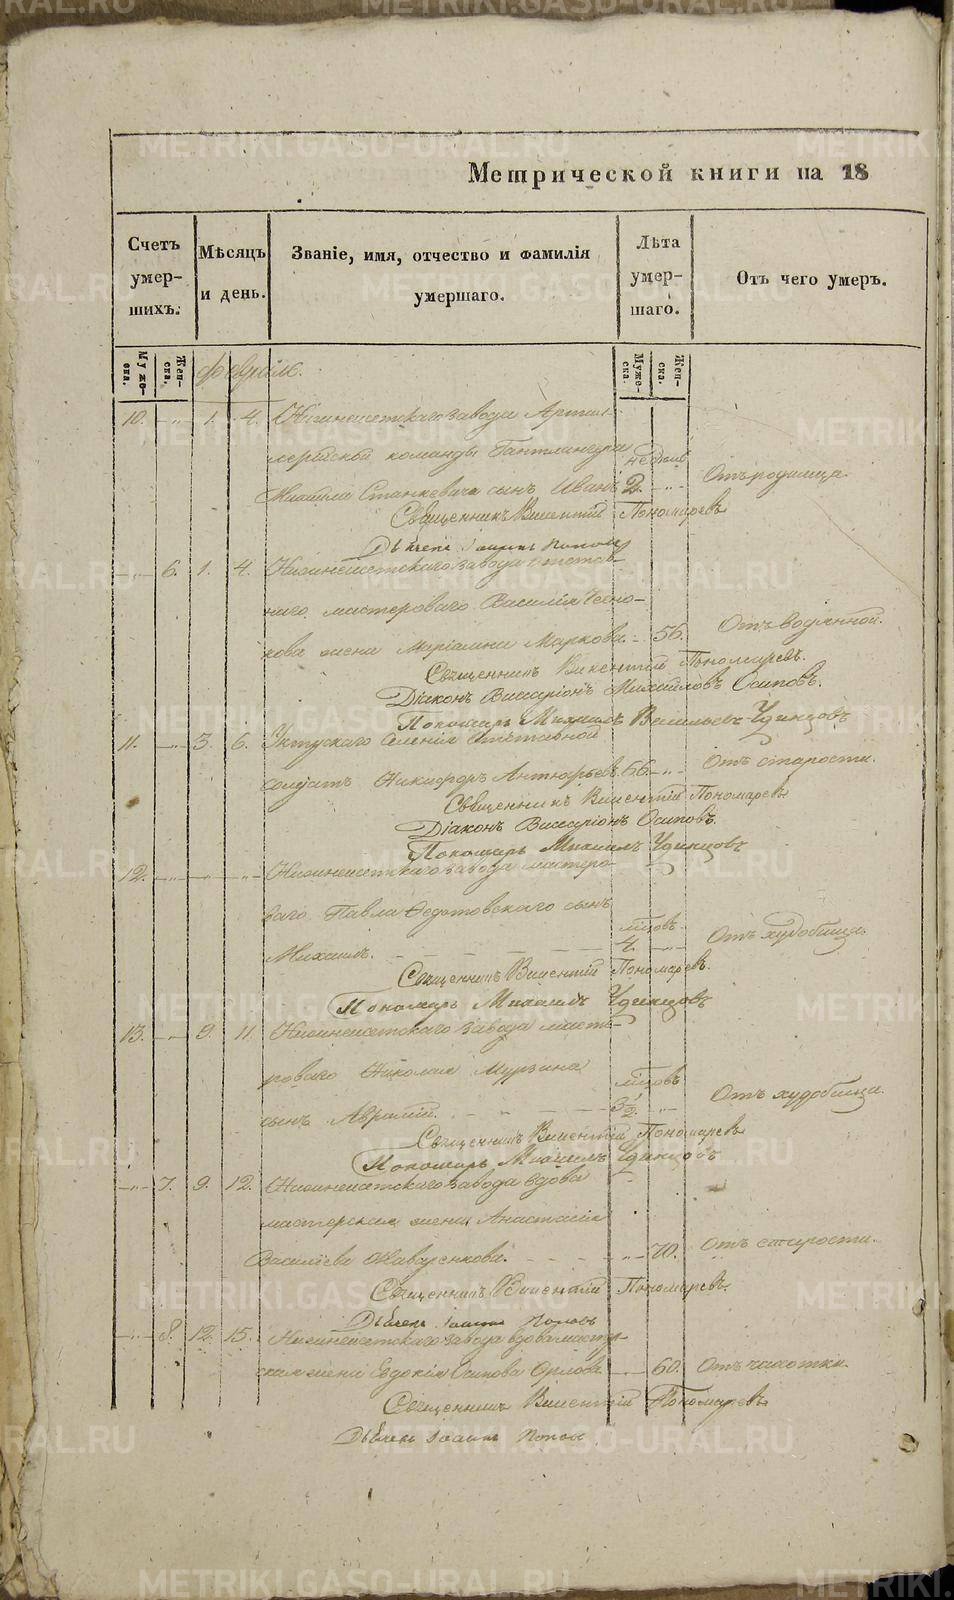 METRIKI.GASO-URAL.RU
Метрической книги на 18
Счетъ умер-шихъ.
Мѣсяцъ и день.
Званіе, имя, отчество и фамилія умершаго.
Лѣта умер-шаго.
Отъ чего умеръ.
Муже-ска.
Жен-ска.
Муже-ска.
Жен-ска.
Февраль.
10. -„- 1. 4. Нижнеисетскаго завода Артил-
лерійской команды
Станкевича сынъ Иванъ 2. -„- Отъ родимца.
Священникъ Викентій Пономаревъ
Дьячекъ Іоаннъ Поповъ
-„- 6. 1. 4. Нижнеисетскаго завода отстав-
наго мастероваго Василія Чесно-
кова жена Маркова. - 56. Отъ водяной.
Священникъ Викентій Пономаревъ.
Діаконъ Виссаріонъ Михайловъ Осиповъ.
Пономарь Михаилъ Васильевъ Удинцовъ
11. -„- 3. 6. Уктускаго селенія отставной
солдатъ Никифоръ Антюфьевъ. 66. -„- Отъ старости.
Священникъ Викентій Пономаревъ
Діаконъ Виссаріонъ Осиповъ.
Пономарь Михаилъ Удинцовъ
12. -„- -„- -„- Нижнеисетскаго завода мастеро-
ваго Павла Федотовскаго сынъ
Михаилъ. мцовъ 4. -„- Отъ худобища.
Священникъ Викентій Пономаревъ.
Пономарь Михаилъ Удинцовъ
13. -„- 9. 11. Нижнеисетскаго завода масте-
роваго Николая Мурзина
сынъ Аврамій. мцовъ 3½. -„- Отъ худобища.
Священникъ Викентій Пономаревъ
Пономарь Михаилъ Удинцовъ
-„- 7. 9. 12. Нижнеисетскаго завода вдова
мастерская жена Анастасія
Васильева -„- 70. Отъ старости.
Священникъ Викентій Пономаревъ.
Дьячекъ Іоаннъ Поповъ
-„- 8. 12. 15. Нижнеисетскаго завода вдова мастер-
ская жена Евдокія Осипова Орлова 60. Отъ чахотки.
Священникъ Викентій Пономаревъ
Дьячекъ Іоаннъ Поповъ